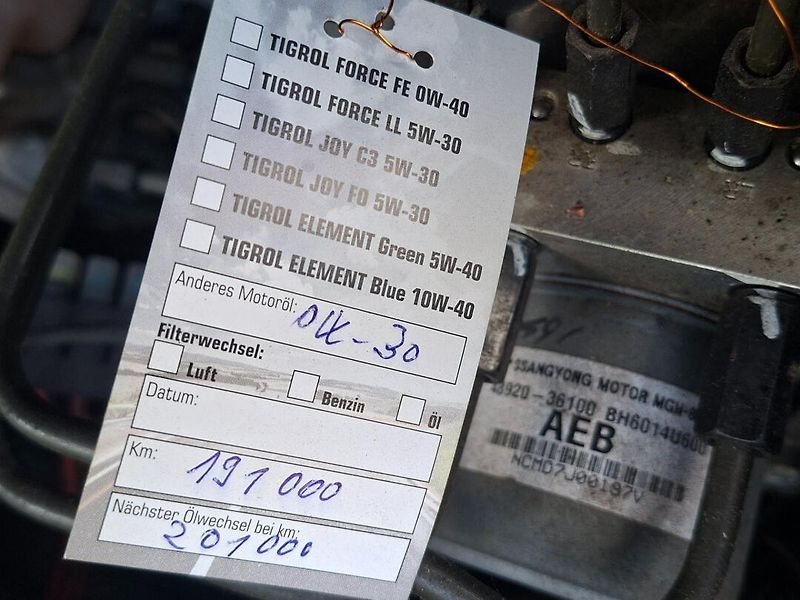 TIGROL FORCE FE 0W-40
TIGROL FORCE LL 5W-30
TIGROL JOY C3 5W-30
TIGROL JOY FO 5W-30
TIGROL ELEMENT Green 5W-40
TIGROL ELEMENT Blue 10W-40
Anderes Motoröl: 0W-30
Filterwechsel:
Luft
Benzin
Öl
Datum:
Km: 191 000
Nächster Ölwechsel bei km:
201 000
SSANGYONG MOTOR
36100 BH6014U600
AEB
NCMD7J00197V